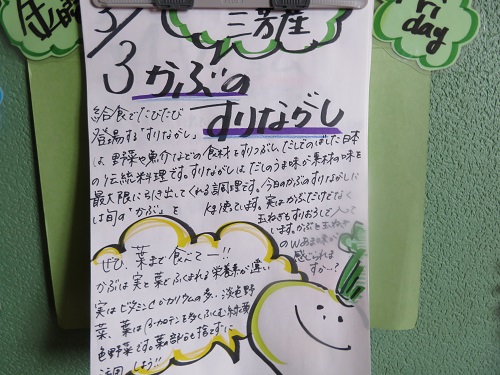 金曜
Friday
3/3
三芳座
かぶの
すりながし
給食でたびたび
登場する「すりながし」
は、野菜や魚介などの食材をすりつぶし、だしでのばした日本
の伝統料理です。すりながしは、だしのうま味が素材の味を
最大限に引き出してくれる調理です。今日のかぶのすりながしに
は旬の"かぶ"を
使っています。実はかぶだけでなく
玉ねぎもすりおろして入って
います。かぶと玉ねぎ
のWあまみが
感じられま
すか…?
ぜひ、葉まで食べてー!!
かぶは実と葉でふくまれる栄養素が違い
実はビタミンCやカリウムの多い淡色野
菜、葉はβ-カロテンを多くふくむ緑黄
色野菜です。葉の部分も捨てずに
活用しよう!!